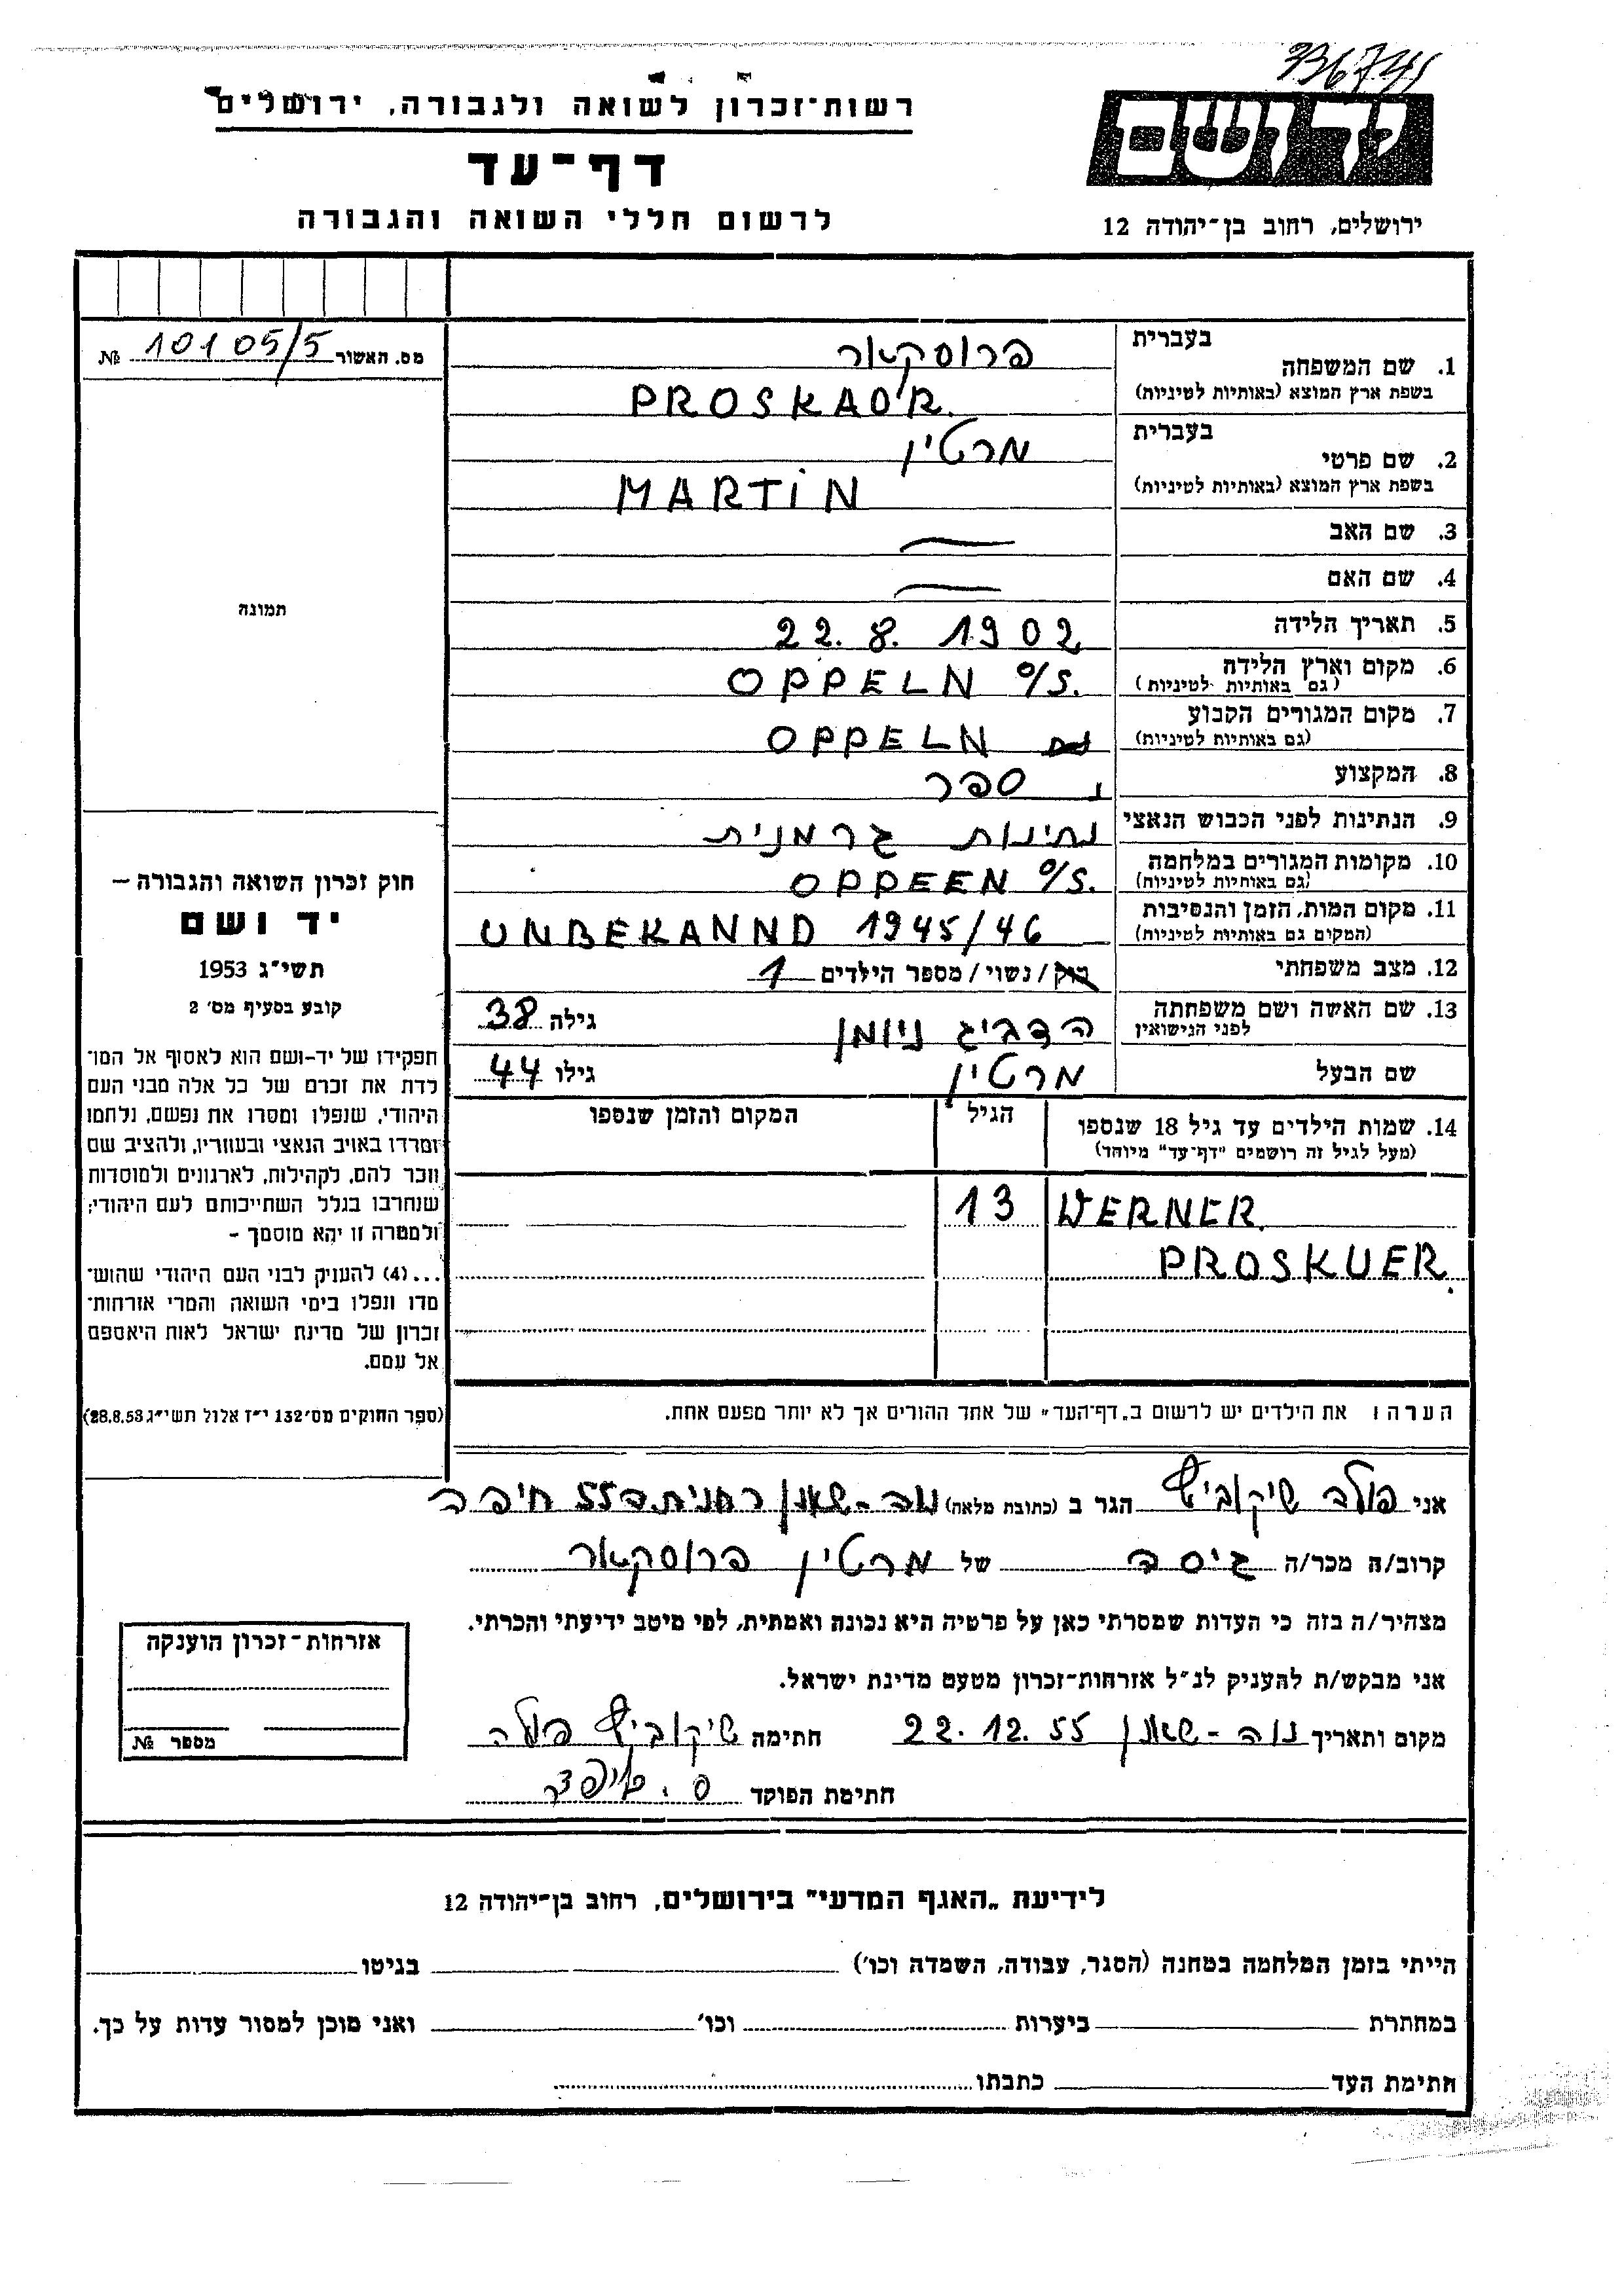 יד ושם
ירושלים, רחוב בן־יהודה 12
רשות־זכרון לשואה ולגבורה, ירושלים
דף־עד
לרשום חללי השואה והגבורה
מס. האשור 10105/5 №
תמונה
בעברית
1. שם המשפחה פרוסקאור
בשפת ארץ המוצא (באותיות לטיניות) PROSKAOR.
בעברית
2. שם פרטי מרטין
בשפת ארץ המוצא (באותיות לטיניות) MARTIN
3. שם האב —
4. שם האם —
5. תאריך הלידה 22. 8. 1902
6. מקום וארץ הלידה OPPELN O/S.
(גם באותיות לטיניות)
7. מקום המגורים הקבוע OPPELN
(גם באותיות לטיניות)
8. המקצוע ספר
9. הנתינות לפני הכבוש הנאצי נתינות גרמנית
10. מקומות המגורים במלחמה OPPEEN O/S.
(גם באותיות לטיניות)
11. מקום המות, הזמן והנסיבות UNBEKANND 1945/46
(המקום גם באותיות לטיניות)
12. מצב משפחתי רוק/נשוי/מספר הילדים 1
13. שם האשה ושם משפחתה הדביג ניומן גילה 38
לפני הנישואין
שם הבעל מרטין גילו 44
14. שמות הילדים עד גיל 18 שנספו הגיל המקום והזמן שנספו
(מעל לגיל זה רושמים "דף־עד" מיוחד)
WERNER 13
PROSKUER.
הערה: את הילדים יש לרשום ב„דף־העד" של אחד ההורים אך לא יותר מפעם אחת.
חוק זכרון השואה והגבורה —
יד ושם
תשי״ג 1953
קובע בסעיף מס׳ 2
תפקידו של יד-ושם הוא לאסוף אל המו־
לדת את זכרם של כל אלה מבני העם
היהודי, שנפלו ומסרו את נפשם, נלחמו
ומרדו באויב הנאצי ובעוזריו, ולהציב שם
וזכר להם, לקהילות, לארגונים ולמוסדות
שנחרבו בגלל השתייכותם לעם היהודי;
ולמטרה זו יהא מוסמך –
...(4) להעניק לבני העם היהודי שהוש־
מדו ונפלו בימי השואה והמרי אזרחות־
זכרון של מדינת ישראל לאות היאספם
אל עמם.
(ספר החוקים מס׳132 י״ז אלול תשי״ג 28.8.53)
אני פולה שיקוביץ הגר ב (כתובת מלאה) נוה-שאנן חיפה
קרוב/ה מכר/ה גיסה של מרטין פרוסקאור
מצהיר/ה בזה כי העדות שמסרתי כאן על פרטיה היא נכונה ואמתית, לפי מיטב ידיעתי והכרתי.
אני מבקש/ת להעניק לנ״ל אזרחות־זכרון מטעם מדינת ישראל.
מקום ותאריך נוה-שאנן 22.12.55 חתימה שיקוביץ פולה
חתימת הפוקד
אזרחות־זכרון הוענקה
מספר №
לידיעת „האגף המדעי" בירושלים, רחוב בן־יהודה 12
הייתי בזמן המלחמה במחנה (הסגר, עבודה, השמדה וכו׳) בגיטו
במחתרת ביערות וכו׳ ואני מוכן למסור עדות על כך.
חתימת העד כתבתו